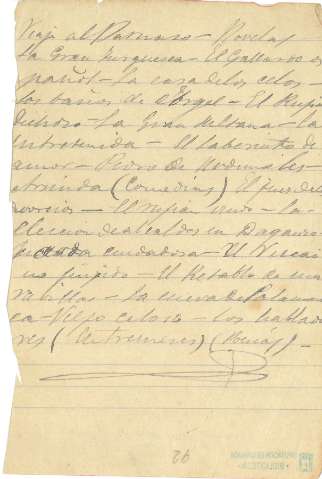 Viaje al Parnaso - Novelas
La Gran Turquesca - El Gallardo es
pañol - La casa de los celos -
Los baños de Argel - El Rufian
dichoso - La Gran Sultana - La
Entretenida - El laberinto de
amor - Pedro de Urdemales -
(Comedias) El Juez del
divorcio - El rufian viudo - La
Eleccion de alcaldes en Daganzo
cuidadosa - El Viscai
no fingido - El Retablo de ma
ravillas - La cueva de Salaman
ca - Viejo celoso - Los hablado
res (Entremeses) (Poesías) -
92